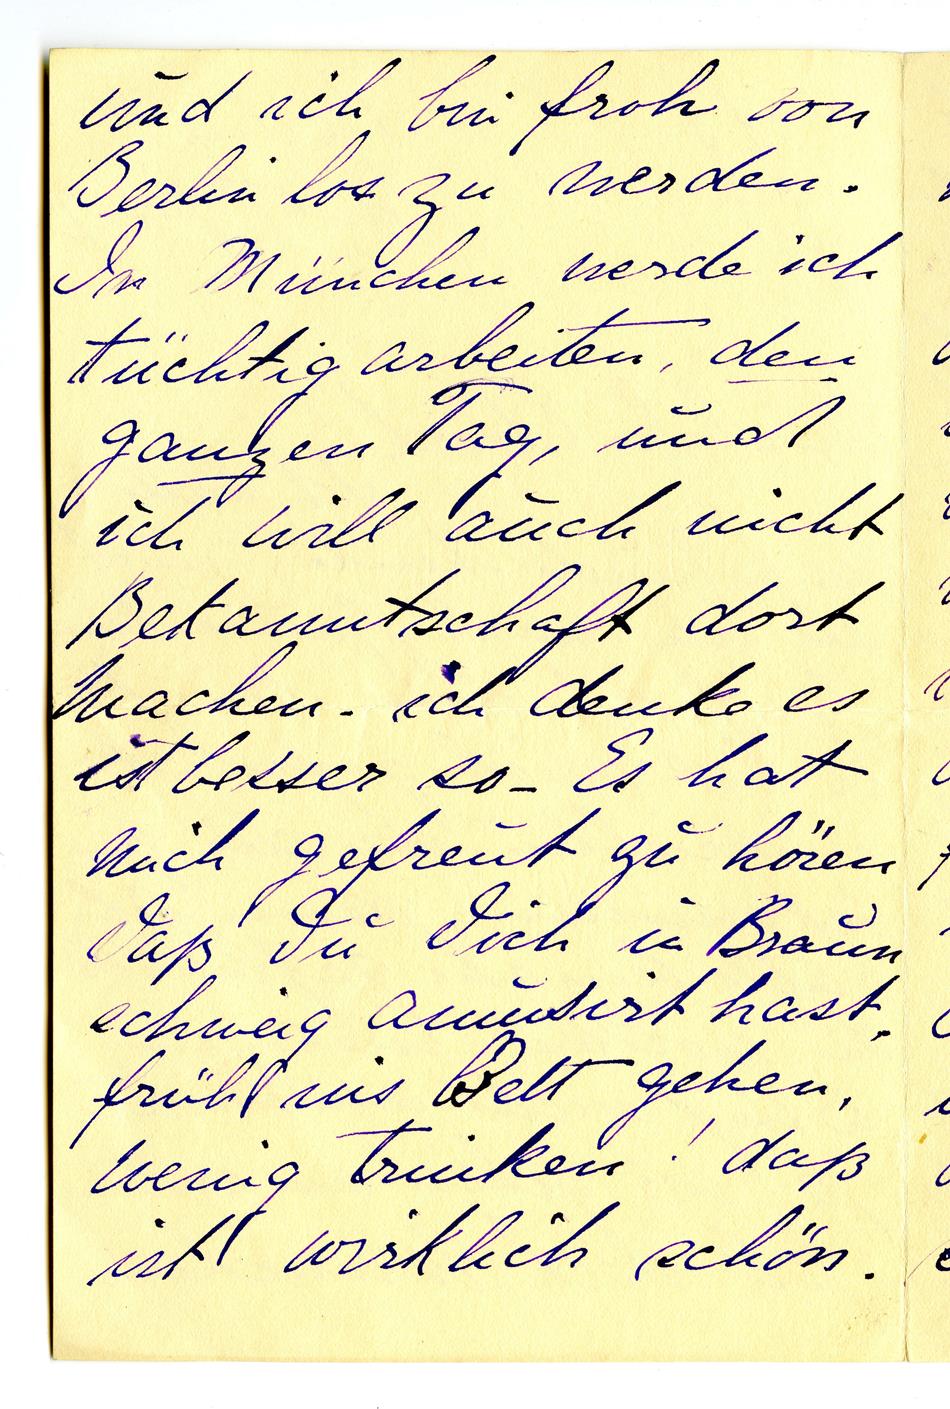 und ich bin froh von
Berlin los zu werden.
In München werde ich
tüchtig arbeiten, den
ganzen Tag, und
ich will auch nicht
Bekanntschaft dort
machen - ich denke es
ist besser so - Es hat
mich gefreut zu hören
daß Du Dich in Braun
schweig amusirt hast,
früh ins Bett gehen,
wenig trinken! daß
ist wirklich schön.